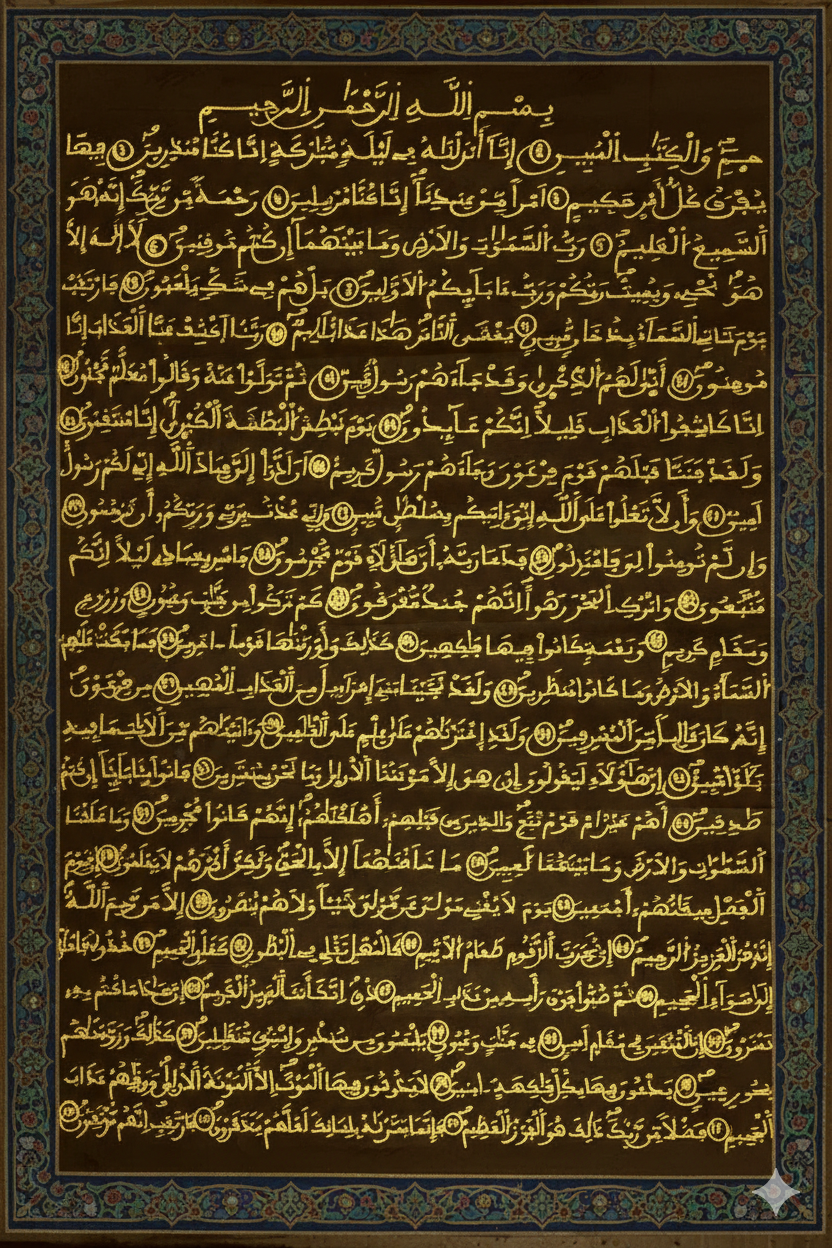 بِسْمِ اللَّهِ الرَّحْمَٰنِ الرَّحِيمِ
حمٓ وَالْكِتَٰبِ الْمُبِينِ ٢ إِنَّا أَنزَلْنَٰهُ فِي لَيْلَةٍ مُّبَٰرَكَةٍ اِنَّا كُنَّا مُنذِرِينَ ٣ فِيهَا
يُفْرَقُ كُلُّ أَمْرٍ حَكِيمٍ ٤ اَمْراً مِّنْ عِندِنَا إِنَّا كُنَّا مُرْسِلِينَ ٥ رَحْمَةً مِّن رَّبِّكَ إِنَّهُ هُوَ
السَّمِيعُ الْعَلِيمُ ٦ رَبُّ السَّمَٰوَٰتِ وَالاَرْضِ وَمَا بَيْنَهُمَا إِن كُنتُم مُّوقِنِينَ ٧ لَا إِلَٰهَ إِلَّا
هُوَ يُحْيِ وَيُمِيتُ رَبُّكُمْ وَرَبُّ ءَابَآيِكُمُ الاَوَّلِينَ ٨ بَلْ هُمْ فِي شَكٍّ يَلْعَبُونَ ٩ فَارْتَقِبْ
يَوْمَ تَاتِي السَّمَآءُ بِدُخَانٍ مُّبِينٍ ١٠ يَغْشَى النَّاسَ هَٰذَا عَذَابٌ اَلِيمٌ ١١ رَبَّنَا اَكْشِفْ عَنَّا الْعَذَابَ إِنَّا
مُومِنُونَ ١٢ أَنّٰى لَهُمُ الذِّكْرٰى وَقَدْ جَآءَهُمْ رَسُولٌ مُّبِينٌ ١٣ ثُمَّ تَوَلَّوْا عَنْهُ وَقَالُوا مُعَلَّمٌ مَّجْنُونٌ ١٤
اِنَّا كَاشِفُوا الْعَذَابِ قَلِيلاً اِنَّكُمْ عَآئِدُونَ ١٥ يَوْمَ نَبْطِشُ الْبَطْشَةَ الْكُبْرٰى إِنَّا مُنتَقِمُونَ ١٦
وَلَقَدْ فَتَنَّا قَبْلَهُمْ قَوْمَ فِرْعَوْنَ وَجَآءَهُمْ رَسُولٌ كَرِيمٌ ١٧ اَنَ اَدُّوا إِلَيَّ عِبَادَ اللَّهِ إِنِّي لَكُمْ رَسُولٌ
اَمِينٌ ١٨ وَأَن لاَّ تَعْلُوا عَلَى اللَّهِ إِنِّيَ ءَاتِيكُم بِسُلْطَٰنٍ مُّبِينٍ ١٩ وَإِنِّي عُذْتُ بِرَبِّي وَرَبِّكُمُ أَن تَرْجُمُونِ ٢٠
وَإِن لَّمْ تُومِنُوا لِيَ فَاعْتَزِلُونِ ٢١ فَدَعَا رَبَّهُ أَنَّ هَٰؤُلَاءِ قَوْمٌ مُّجْرِمُونَ ٢٢ فَاسْرِ بِعِبَادِي لَيْلاً اِنَّكُم
مُّتَّبَعُونَ ٢٣ وَاتْرُكِ الْبَحْرَ رَهْواً اِنَّهُمْ جُندٌ مُّغْرَقُونَ ٢٤ كَمْ تَرَكُوا مِن جَنَّٰتٍ وَعُيُونٍ ٢٥ وَزُرُوعٍ
وَمَقَامٍ كَرِيمٍ ٢٦ وَنَعْمَةٍ كَانُوا فِيهَا فَٰكِهِينَ ٢٧ كَذَٰلِكَ وَأَوْرَثْنَٰهَا قَوْماً ـ اخَرِينَ ٢٨ فَمَا بَكَتْ عَلَيْهِمُ
السَّمَآءُ وَالاَرْضُ وَمَا كَانُوا مُنظَرِينَ ٢٩ وَلَقَدْ نَجَّيْنَا بَنِي إِسْرَآءِيلَ مِنَ الْعَذَابِ الْمُهِينِ ٣٠ مِن فِرْعَوْنَ
إِنَّهُ كَانَ عَالِياً مِّنَ الْمُسْرِفِينَ ٣١ وَلَقَدِ اخْتَرْنَٰهُمْ عَلَىٰ عِلْمٍ عَلَى الْعَٰلَمِينَ ٣٢ وَءَاتَيْنَٰهُم مِّنَ الاَيَٰتِ مَا فِيهِ
بَلَٰٓؤٌا مُّبِينٌ ٣٣ اِنَّ هَٰؤُلَآءِ لَيَقُولُونَ ٣٤ إِنْ هِيَ إِلَّا مَوْتَتُنَا الاُولٰى وَمَا نَحْنُ بِمُنشَرِينَ ٣٥ فَاتُوا بِـَٔابَآئِنَا إِن كُنتُمْ
صَٰدِقِينَ ٣٦ أَهُمْ خَيْرٌ اَمْ قَوْمُ تُبَّعٍ وَالذِينَ مِن قَبْلِهِمُ أَهْلَكْنَٰهُمُ إِنَّهُمْ كَانُوا مُجْرِمِينَ ٣٧ وَمَا خَلَقْنَا
السَّمَٰوَٰتِ وَالاَرْضَ وَمَا بَيْنَهُمَا لَٰعِبِينَ ٣٨ مَا خَلَقْنَٰهُمَا إِلَّا بِالْحَقِّ وَلَٰكِنَّ أَكْثَرَهُمْ لَا يَعْلَمُونَ ٣٩ إِنَّ يَوْمَ
الْفَصْلِ مِيقَٰتُهُمُ أَجْمَعِينَ ٤٠ يَوْمَ لَا يُغْنِي مَوْلًى عَن مَّوْلًى شَيْـٔاً وَلَا هُمْ يُنصَرُونَ ٤١ إِلَّا مَن رَّحِمَ اللَّهُ
إِنَّهُ هُوَ الْعَزِيزُ الرَّحِيمُ ٤٢ إِنَّ شَجَرَتَ الزَّقُّومِ طَعَامُ الاَثِيمِ ٤٣ كَالْمُهْلِ تَغْلِي فِي الْبُطُونِ ٤٤ كَغَلْيِ الْحَمِيمِ ٤٥ خُذُوهُ فَاعْتُلُوهُ
إِلَىٰ سَوَآءِ الْجَحِيمِ ٤٦ ثُمَّ صُبُّوا فَوْقَ رَأْسِهِ مِنْ عَذَابِ الْحَمِيمِ ٤٧ ذُقِ اِنَّكَ أَنتَ الْعَزِيزُ الْكَرِيمُ ٤٨ إِنَّ هَٰذَا مَا كُنتُم بِهِ
تَمْتَرُونَ ٤٩ إِنَّ الْمُتَّقِينَ فِي مُقَامٍ اَمِينٍ ٥٠ فِي جَنَّٰتٍ وَعُيُونٍ ٥١ يَلْبَسُونَ مِن سُندُسٍ وَإِسْتَبْرَقٍ مُّتَقَٰبِلِينَ ٥٢ كَذَٰلِكَ وَزَوَّجْنَٰهُم
بِحُورٍ عِينٍ ٥٣ يَدْعُونَ فِيهَا بِكُلِّ فَٰكِهَةٍ ـ امِنِينَ ٥٤ لَا يَذُوقُونَ فِيهَا الْمَوْتَ إِلَّا الْمَوْتَةَ الاُولٰى وَوَقَٰهُمْ عَذَابَ
الْجَحِيمِ ٥٥ فَضْلاً مِّن رَّبِّكَ ذَٰلِكَ هُوَ الْفَوْزُ الْعَظِيمُ ٥٦ فَإِنَّمَا يَسَّرْنَٰهُ بِلِسَانِكَ لَعَلَّهُمْ يَتَذَكَّرُونَ ٥٧ فَارْتَقِبِ اِنَّهُم مُّرْتَقِبُونَ ٥٨